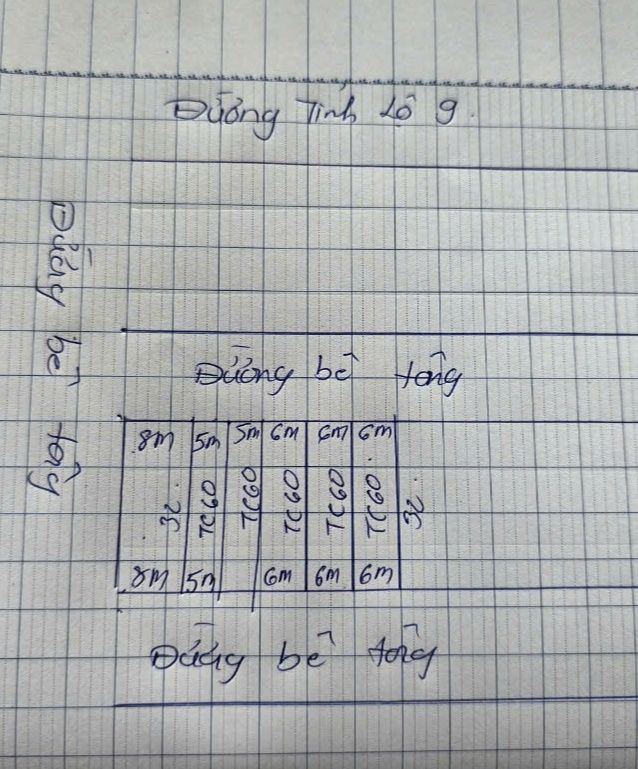 Đường Tỉnh Lộ 9.
Đường bê tông
Đường bê tông
8m 5m 5m 6m 6m 6m
32. TC60 TC60 TC60 TC60 TC60. 32.
8m 5m 6m 6m 6m
Đường bê tông